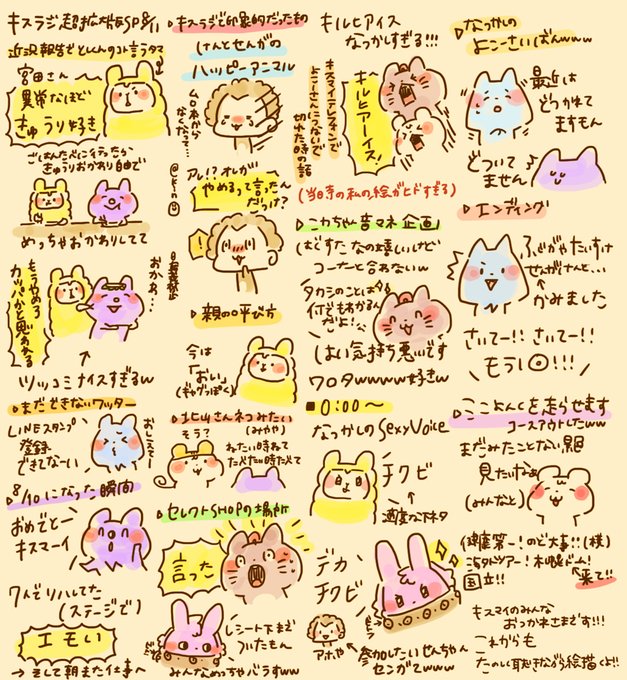 キスラジ超拡大版SP 8/11
近況報告でとしくんのコト言うタマ
宮田さん
異常なほど
きゅうり好き
ごはんたべに行ったら
きゅうりおかわり自由で
めっちゃおかわりしてて
もうやめろ
カッパかと思われる
おかわ…
ツッコミナイスすぎるw
▷まだできないワッター
LINEスタンプ
登録
できてなーい
おしえてー
▷8/10になった瞬間
おめでとー
キスマーイ
7人でリハしてた
(ステージで)
エモい
→そして朝また仕事へ
▷キスラジで印象的だったもの
けんとせんがの
ハッピーアニマル
アレ!?オレが
やめるって言ったん
だっけ?
▷親の呼び方
今は
「おい」
(ギャグっぽく)
▷北山さんネコみたい
そう?
(みやや)
ねたい時ねて
たべたい時たべて
▷セレクトSHOPの場所
言った
レシート下まで
ついたもん
みんなめっちゃバラすww
キルヒアイス
なつかしすぎる!!!
キルヒアーイス!
切れた時の話
(当時の私の絵がヒドすぎる)
▷こわちゃん音マネ企画
コーナーと合わないw
タカシのことは
何でもわかるん
だよ!
はい気持ち悪いです
ワロタwwww好きw
■0:00〜
なつかしのSexyVoice
チクビ
適度な下ネタ
デカ
チクビ
アホや
参加したいせんちゃん
センガてwww
▷なつかしの
よこーさいばんwww
最近は
どつかれて
ますもん
どついて
ません♪
▷エンディング
ふじがやたいすけ
せんがけんと…
かみました
さいてー!! さいてー!!
もう1回!!!
▷ここよんくを走らせます
コースアウトしたww
まだみたことない景色
見たいなぁ
(みんなと)
健康第一!のど大事!!(横)
国立!!
来て!!
キスマイのみんな
おつかれさまです!!!
これからも
たのしく耳ききながら絵描くぞ!!